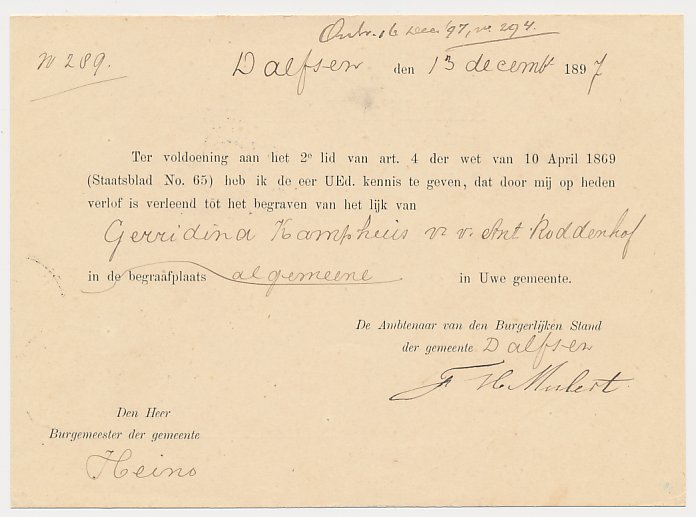 Ontv. 16 Dec '97, no 294.
No 289.
Dalfsen den 13 decembr 1897
Ter voldoening aan het 2e lid van art. 4 der wet van 10 April 1869
(Staatsblad No. 65) heb ik de eer UEd. kennis te geven, dat door mij op heden
verlof is verleend tot het begraven van het lijk van
Gerridina Kamphuis v. v. Ant Roddenhof
in de begraafplaats algemeene in Uwe gemeente.
De Ambtenaar van den Burgerlijken Stand
der gemeente Dalfsen
F H Mulert.
Den Heer
Burgemeester der gemeente
Heino